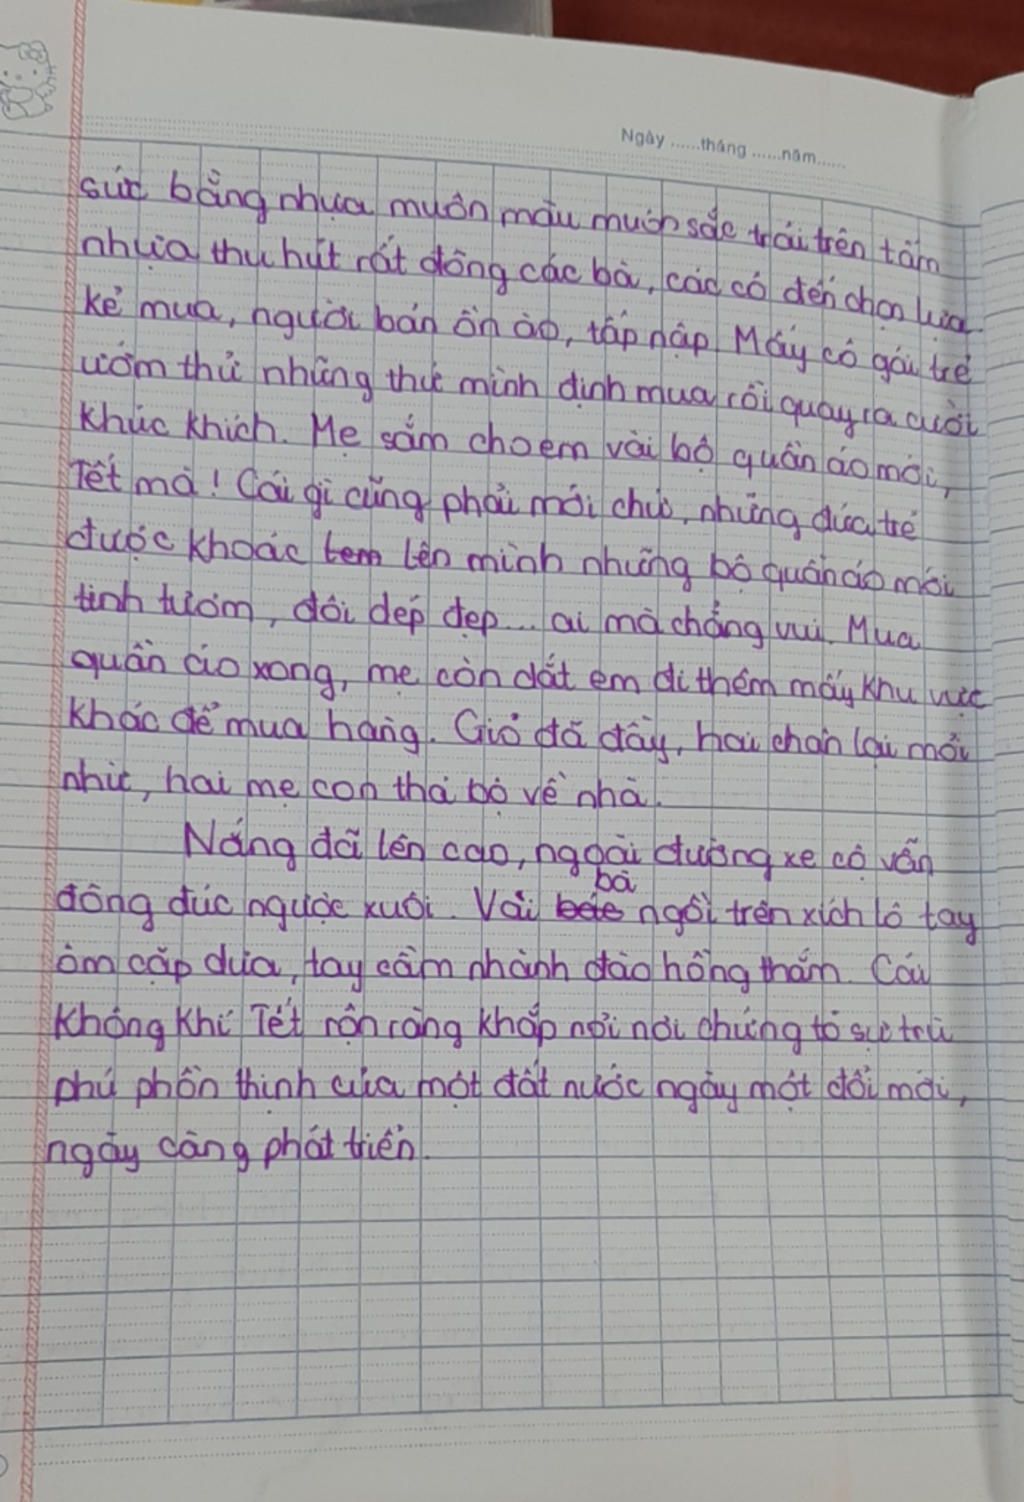 Ngày ......tháng ......năm......
sức bằng nhựa muôn màu muôn sắc trải trên tấm
nhựa thu hút rất đông các bà, các cô đến chọn lựa.
Kẻ mua, người bán ồn ào, tấp nập. Mấy cô gái trẻ
ướm thử những thứ mình định mua rồi quay ra cười
khúc khích. Mẹ sắm cho em vài bộ quần áo mới,
Tết mà! Cái gì cũng phải mới chứ, những đứa trẻ
được khoác tem lên mình những bộ quần áo mới
tinh tươm, đôi dép đẹp... ai mà chẳng vui. Mua
quần áo xong, mẹ còn dắt em đi thêm mấy khu vực
khác để mua hàng. Giỏ đã đầy, hai chân lại mỏi
nhừ, hai mẹ con thả bộ về nhà.
Nắng đã lên cao, ngoài đường xe cộ vẫn
đông đúc ngược xuôi. Vài các bà ngồi trên xích lô tay
ôm cặp dừa, tay cầm nhành đào hồng thắm. Cái
Không khí Tết rộn ràng khắp nơi nơi chứng tỏ sự trù
phú phồn thịnh của một đất nước ngày một đổi mới,
ngày càng phát triển.